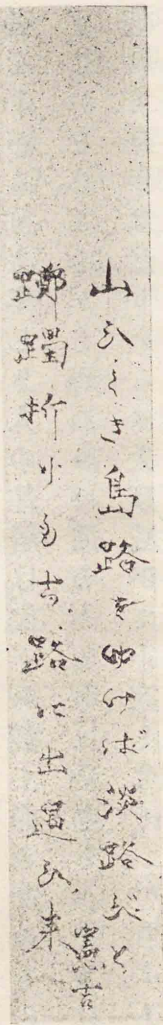 山ひくき島路をゆけば淡路びと
躑躅折りもち路に出遇ひ来
憲吉